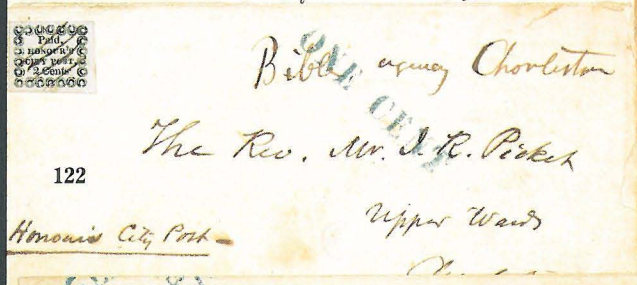 Paid.
HONOUR'S
CITY POST.
2 Cents
ONE CENT
Bible agency Charleston
The Rev. Mr. J. R. Picket
122
Upper Wards
Honour's City Post